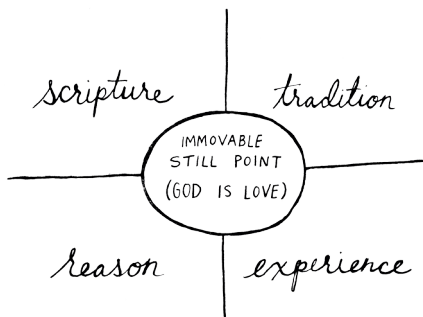 scripture
tradition
IMMOVABLE
STILL POINT
(GOD IS LOVE)
reason
experience